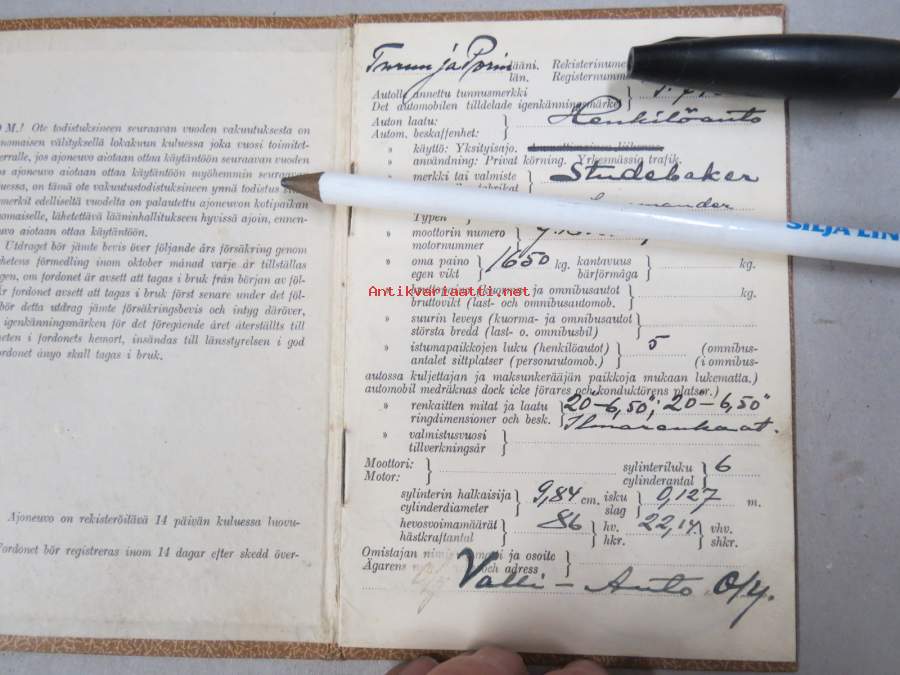 M.! Ote todistuksineen seuraavan vuoden vakuutuksesta on
nomaisen välityksellä lokakuun kuluessa joka vuosi toimitet-
erralle, jos ajoneuvo aiotaan ottaa käytäntöön seuraavan vuoden
os ajoneuvo aiotaan ottaa käytäntöön myöhemmin seuraavan
uessa, on tämä ote vakuutustodistuksineen ynnä todistus
merkit edelliseltä vuodelta on palautettu ajoneuvon kotipaikan
nomaiselle, lähetettävä lääninhallitukseen hyvissä ajoin, ennen-
uvo aiotaan ottaa käytäntöön.
Utdraget bör jämte bevis över följande års försäkring genom
hetens förmedling inom oktober månad varje år tillställas
gen, om fordonet är avsett att tagas i bruk från början av föl-
r fordonet avsett att tagas i bruk först senare under det föl-
bör detta utdrag jämte försäkringsbevis och intyg däröver,
igenkänningsmärken för det föregående året återställts till
heten i fordonets hemort, insändas till länsstyrelsen i god
ordonet ånyo skall tagas i bruk.
Ajoneuvo on rekisteröitävä 14 päivän kuluessa luovu-
Fordonet bör registreras inom 14 dagar efter skedd över-
Turun ja Porin lääni. Rekisterinume
län. Registernumm
Autolle annettu tunnusmerkki
Det automobilen tilldelade igenkänningsmärke
Auton laatu: Henkilöauto
Autom. beskaffenhet:
» käyttö: Yksityisajo.
» användning: Privat körning. Yrkesmässig trafik.
» merkki tai valmiste Studebaker
fabrikat
Typen
» moottorin numero
motornummer
» oma paino 1650 kg. kantavuus kg.
egen vikt bärförmåga
Antikvariaatti.net
omnibusautot kg.
bruttovikt (last- och omnibusautomob.
» suurin leveys (kuorma- ja omnibusautot
största bredd (last- o. omnibusbil)
» istumapaikkojen luku (henkilöautot) 5 (omnibus-
antalet sittplatser (personautomob.) (i omnibus-
autossa kuljettajan ja maksunkerääjän paikkoja mukaan lukematta.)
automobil medräknas dock icke förares och konduktörens platser.)
» renkaitten mitat ja laatu 20-6,50"; 20-6,50"
ringdimensioner och besk. Ilmarenkaat.
» valmistusvuosi
tillverkningsår
Moottori: sylinteriluku 6
Motor: cylinderantal
sylinterin halkaisija 9,84 cm. isku 0,127 m.
cylinderdiameter slag
hevosvoimamäärät 86 hv. 22,14 vhv.
hästkraftantal hkr. shkr.
Omistajan ja osoite
Ägarens och adress
Valli - Auto O/Y.
SILJA LIN